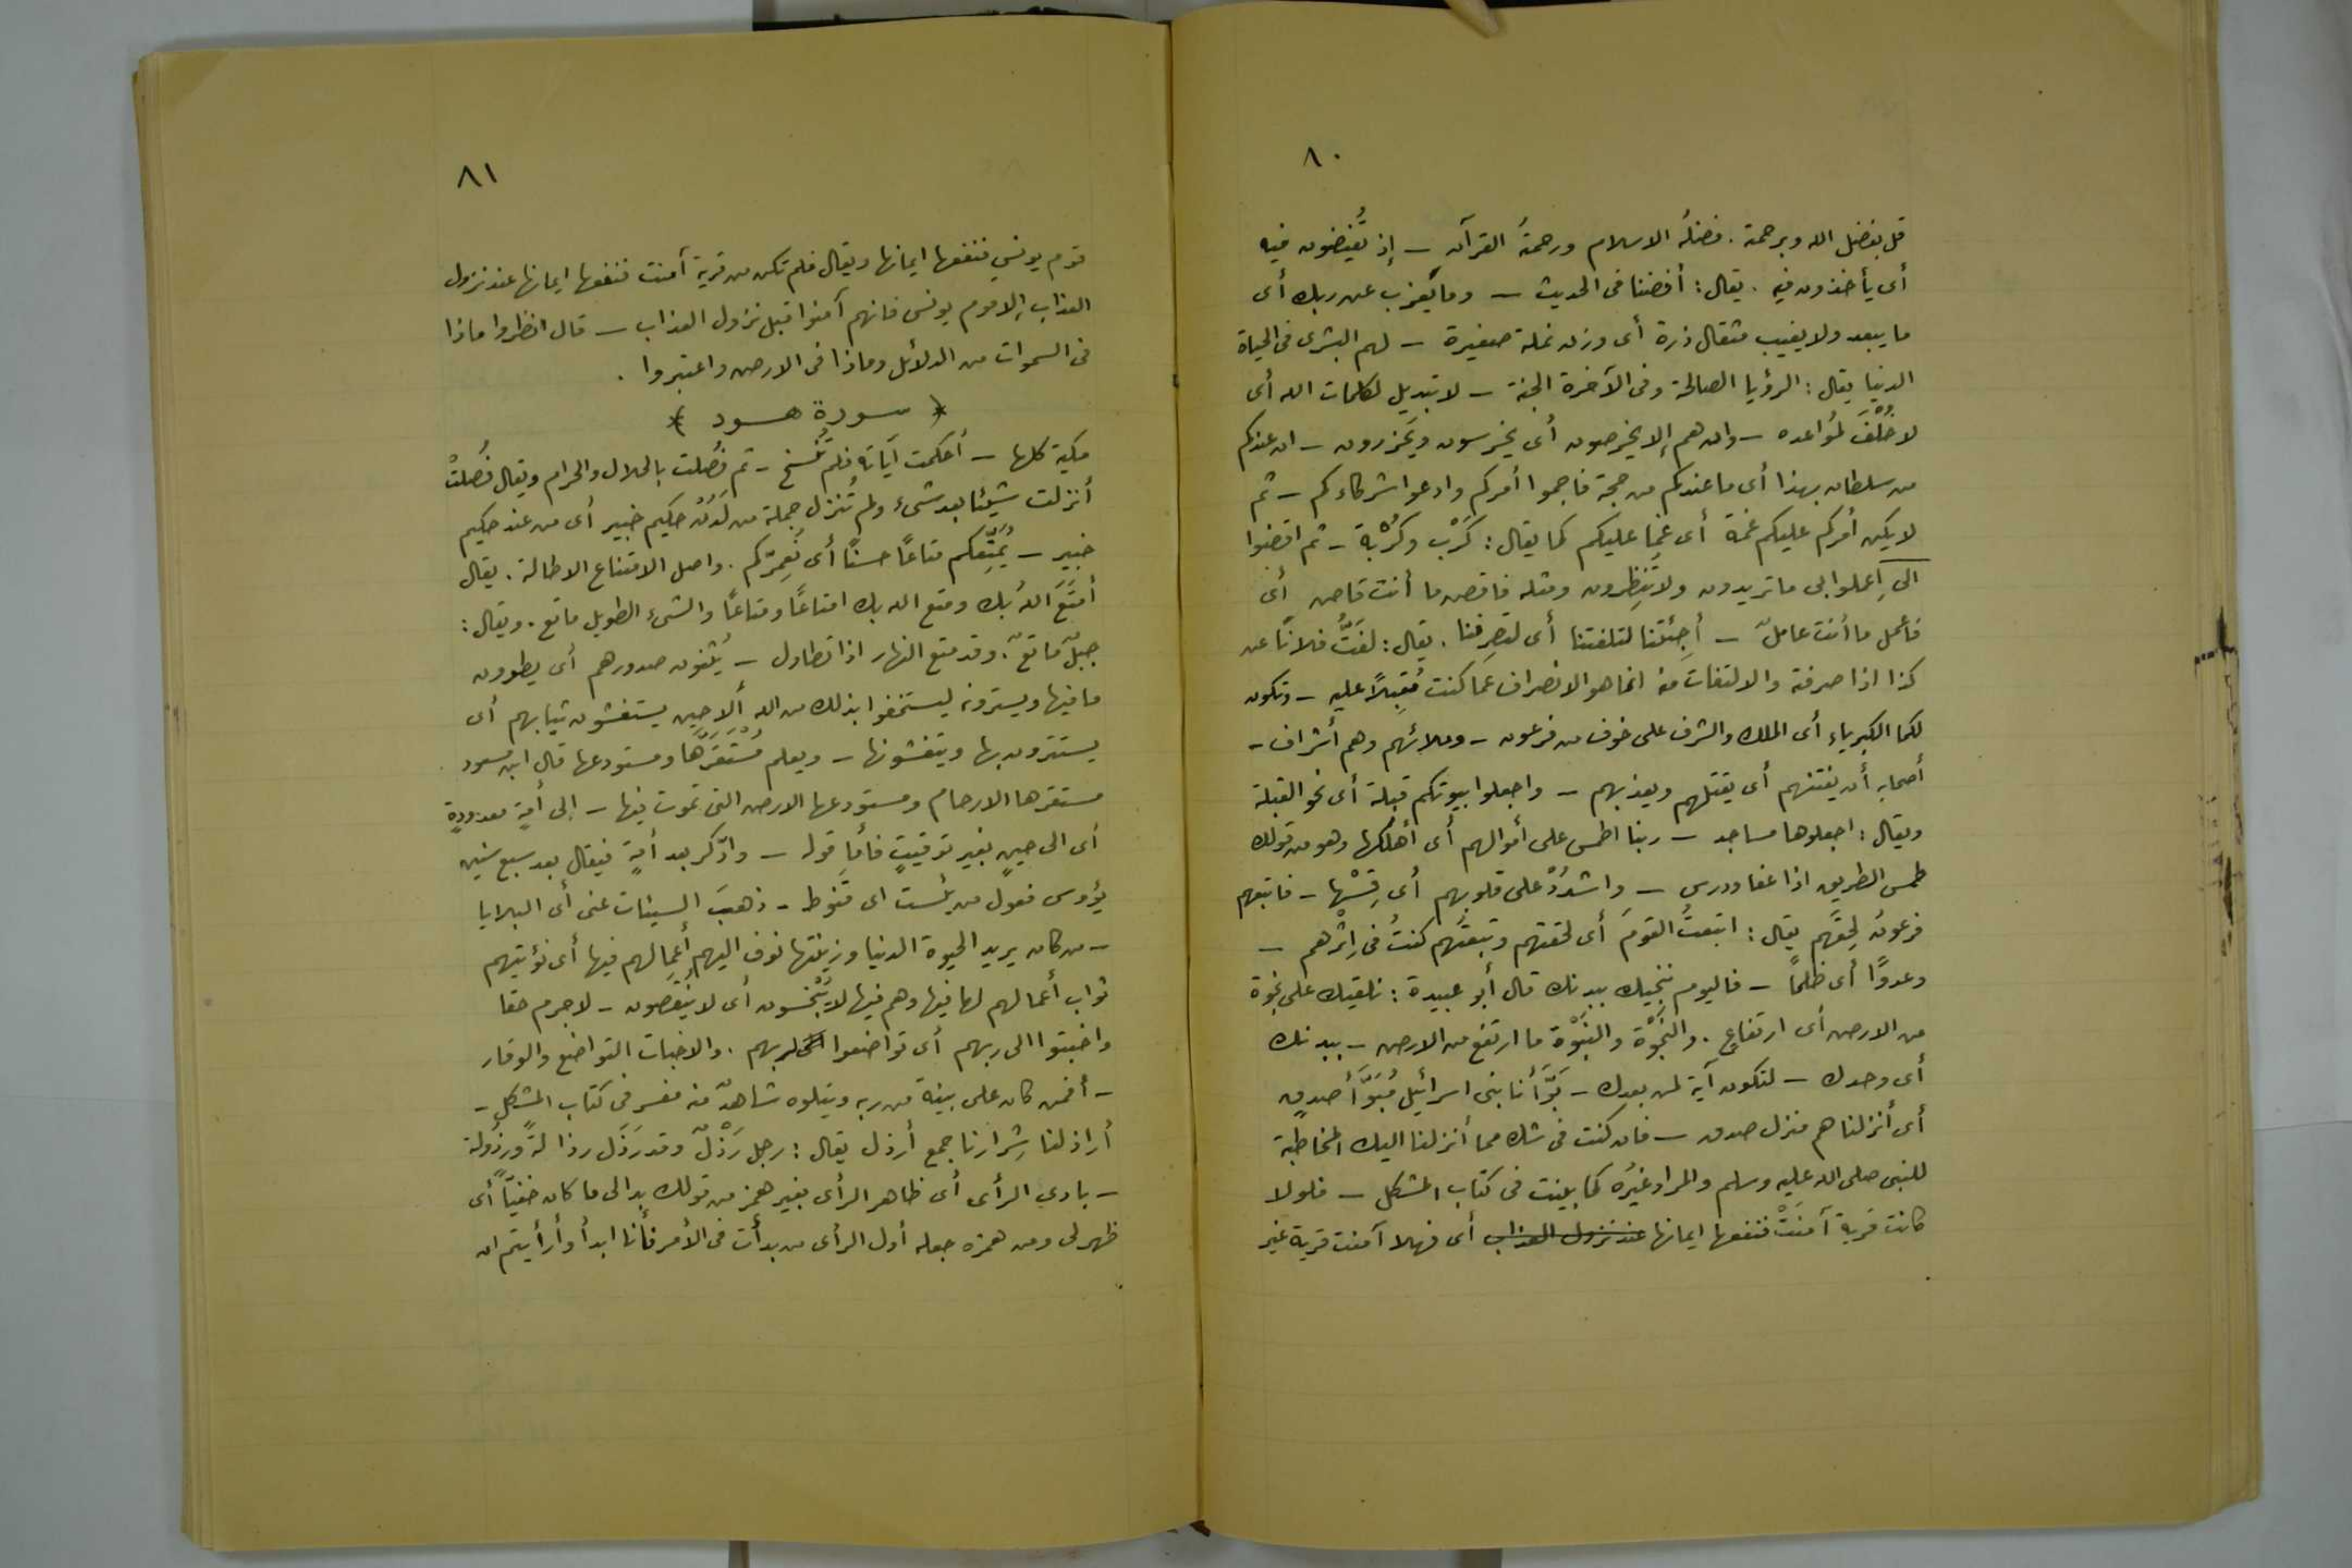 ٨٠
قل بفضل الله وبرحمته . فضلُه الاسلام ورحمتُه القرآن — إذ تُفيضون فيه
أى يأخذون فيه . يقال : أفضنا فى الحديث — وما يَعْزب عن ربك أى
ما يبعد ولا يغيب مثقال ذرة أى وزن نملة صغيرة — لهم البشرى فى الحياة
الدنيا يقال : الرؤيا الصالحة وفى الآخرة الجنة — لا تبديل لكلمات الله أى
لا خُلْفَ لمُواعده — وان هم إلا يخرصون أى يخرسون ويَحْزرون — ان عندكم
من سلطان بهذا أى ما عندكم من حجة فاجمعوا أمركم وادعوا شركاءكم — ثم
لا يكن أمركم عليكم غمة أى غَمًّا عليكم كما يقال : كَرْب وكُرْبة — ثم اقضوا
الىّ اِعملوا بى ما تريدون ولا تُنْظِرون ومثله فاقض ما أنت قاض أى
فاعمل ما أنت عاملٌ — أجِئتَنا لتلفتنا أى لتصرِفنا . يقال : لفَتُّ فلانًا عن
كذا اذا صرفته والالتفات منه انما هو الانصراف عما كنت مُقبِلاً عليه — وتكون
لكما الكبرياء أى الملك والشرف على خوف من فرعون — وملائهم وهم أشراف —
أصحابه أن يفتنهم أى يقتلهم ويعذبهم — واجعلوا بيوتكم قبلة أى نحو القبلة
ويقال : اجعلوها مساجد — ربنا اطمس على أموالهم أى أهلكها وهو من قولك
طمس الطريق اذا عفا ودرس — واشدُدْ على قلوبهم أى قسِّها — فاتبعهم
فرعونُ لَحِقَهم يقال : اتبعتُ القومَ أى لحقتهم وتبعتُهم كنتُ فى إثْرهم —
وعدوًا أى ظلمًا — فاليوم ننجيك ببدنك قال أبو عبيدة : نلقيك على نجوة
من الارض أى ارتفاع . والنَجْوَة والنَبْوَة ما ارتفع من الارض — ببدنك
أى وحدك — لتكون آية لمن بعدك — بَوَّأنا بنى اسرائيل مُبَوَّأ صدقٍ
أى أنزلناهم منزل صدق — فان كنت فى شك مما أنزلنا اليك المخاطبة
للنبى صلى الله عليه وسلم والمراد غيرُه كما بينت فى كتاب المشكل — فلولا
كانت قرية آمنَتْ فنفعها ايمانها عند نزول العذاب أى فهلا آمنت قرية غير
٨١
قوم يونس فنفعها ايمانها ويقال فلم تكن من قرية آمنت فنفعها ايمانها عند نزول
العذاب إلا قوم يونس فانهم آمنوا قبل نزول العذاب — قال انظروا ماذا
فى السموات من الدلائل وماذا فى الارض واعتبروا .
﴿ سورة هود ﴾
مكية كلها — أحكمت آياته فلم تُنْسخ — ثم فُصّلت بالحلال والحرام ويقال فُصّلتْ
أنزلت شيئا بعد شىء ولم تُنزل جملة من لَدُنْ حكيم خبير أى من عند حكيم
خبير — يُمَتِّعكم متاعًا حسنًا أى نُعمِّركم . واصل الامتناع الاطالة . يقال
أَمْتَعَ اللهُ بك ومتع الله بك امتاعًا ومتاعًا والشىء الطويل ماتع . ويقال :
جبلٌ ماتعٌ . وقد متع النهار اذا تطاول — يُثنون صدورهم أى يطوون
ما فيها ويسترونه ليستخفوا بذلك من الله ألا حين يستغشون ثيابهم أى
يستترون بها ويتغشونها — ويعلم مُسْتَقَرَّها ومستودعها قال ابن مسعود
مستقرها الارحام ومستودعها الارض التى تموت فيها — إلى أمةٍ معدودةٍ
أى الى حينٍ بغير توقيتٍ فأما قوله — وادّكر بعد أمةٍ فيقال بعد سبع سنين
يؤوس فعول من يئست اى قَنوط — ذهبَ السيئات عنى أى البلايا
— من كان يريد الحيوة الدنيا وزينتها نوف اليهم أعمالهم فيها أى نؤتيهم
ثواب أعمالهم لها فيها وهم فيها لا يُبْخسون أى لا يُنْقَصون — لا جرم حقا
واخبتوا الى ربهم أى تواضعوا لربهم . والاخبات التواضع والوقار
— أفمن كان على بينة من ربه ويتلوه شاهدٌ منه مفسر فى كتاب المشكل —
أراذلنا شِرارنا جمع أرذل يقال : رجل رَذْلٌ وقد رَذَل رذالةً ورُذُولة
— بادي الرأى أى ظاهر الرأى بغير همز من قولك بدا لى ما كان خفيًّا أى
ظهر لى ومن همزه جعله أول الرأى من بدأت فى الأمر فأنا ابدأ وأرأيتم ان